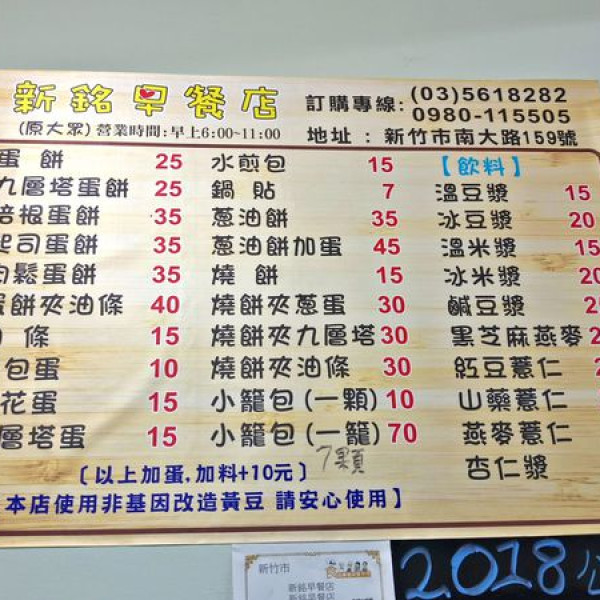 新銘早餐店
(原大眾)營業時間:早上6:00~11:00
訂購專線:(03)5618282
0980-115505
地址：新竹市南大路159號
蛋餅 25
九層塔蛋餅 25
培根蛋餅 35
起司蛋餅 35
肉鬆蛋餅 35
蛋餅夾油條 40
條 15
包蛋 10
花蛋 15
層塔蛋 15
水煎包 15
鍋貼 7
蔥油餅 35
蔥油餅加蛋 45
燒餅 15
燒餅夾蔥蛋 30
燒餅夾九層塔 30
燒餅夾油條 30
小籠包(一顆) 10
小籠包(一籠) 70
7顆
【飲料】
溫豆漿 15
冰豆漿 20
溫米漿 15
冰米漿 20
鹹豆漿
黑芝麻燕麥
紅豆薏仁
山藥薏仁
燕麥薏仁
杏仁漿
〔以上加蛋.加料+10元〕
本店使用非基因改造黃豆 請安心使用】
新竹市
新銘早餐店
新銘早餐店
2018